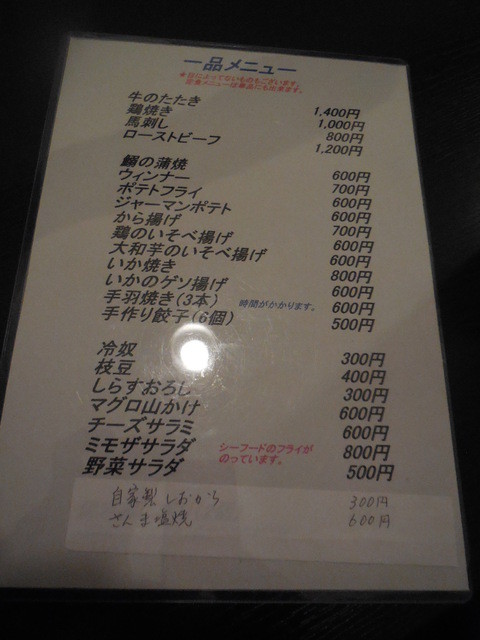 一品メニュー
※日によってないものもございます。
定食メニューは単品でも出来ます。
牛のたたき 1,400円
鶏焼き 1,000円
馬刺し 800円
ローストビーフ 1,200円
鰯の蒲焼 600円
ウィンナー 700円
ポテトフライ 600円
ジャーマンポテト 600円
から揚げ 700円
鶏のいそべ揚げ 600円
大和芋のいそべ揚げ 600円
いか焼き 800円
いかのゲソ揚げ 600円
手羽焼き(3本) 時間がかかります。 600円
手作り餃子(6個) 500円
冷奴 300円
枝豆 400円
しらすおろし 300円
マグロ山かけ 600円
チーズサラミ 600円
ミモザサラダ シーフードのフライが 800円
のっています。
野菜サラダ 500円
自家製しおから 300円
さんま塩焼 600円